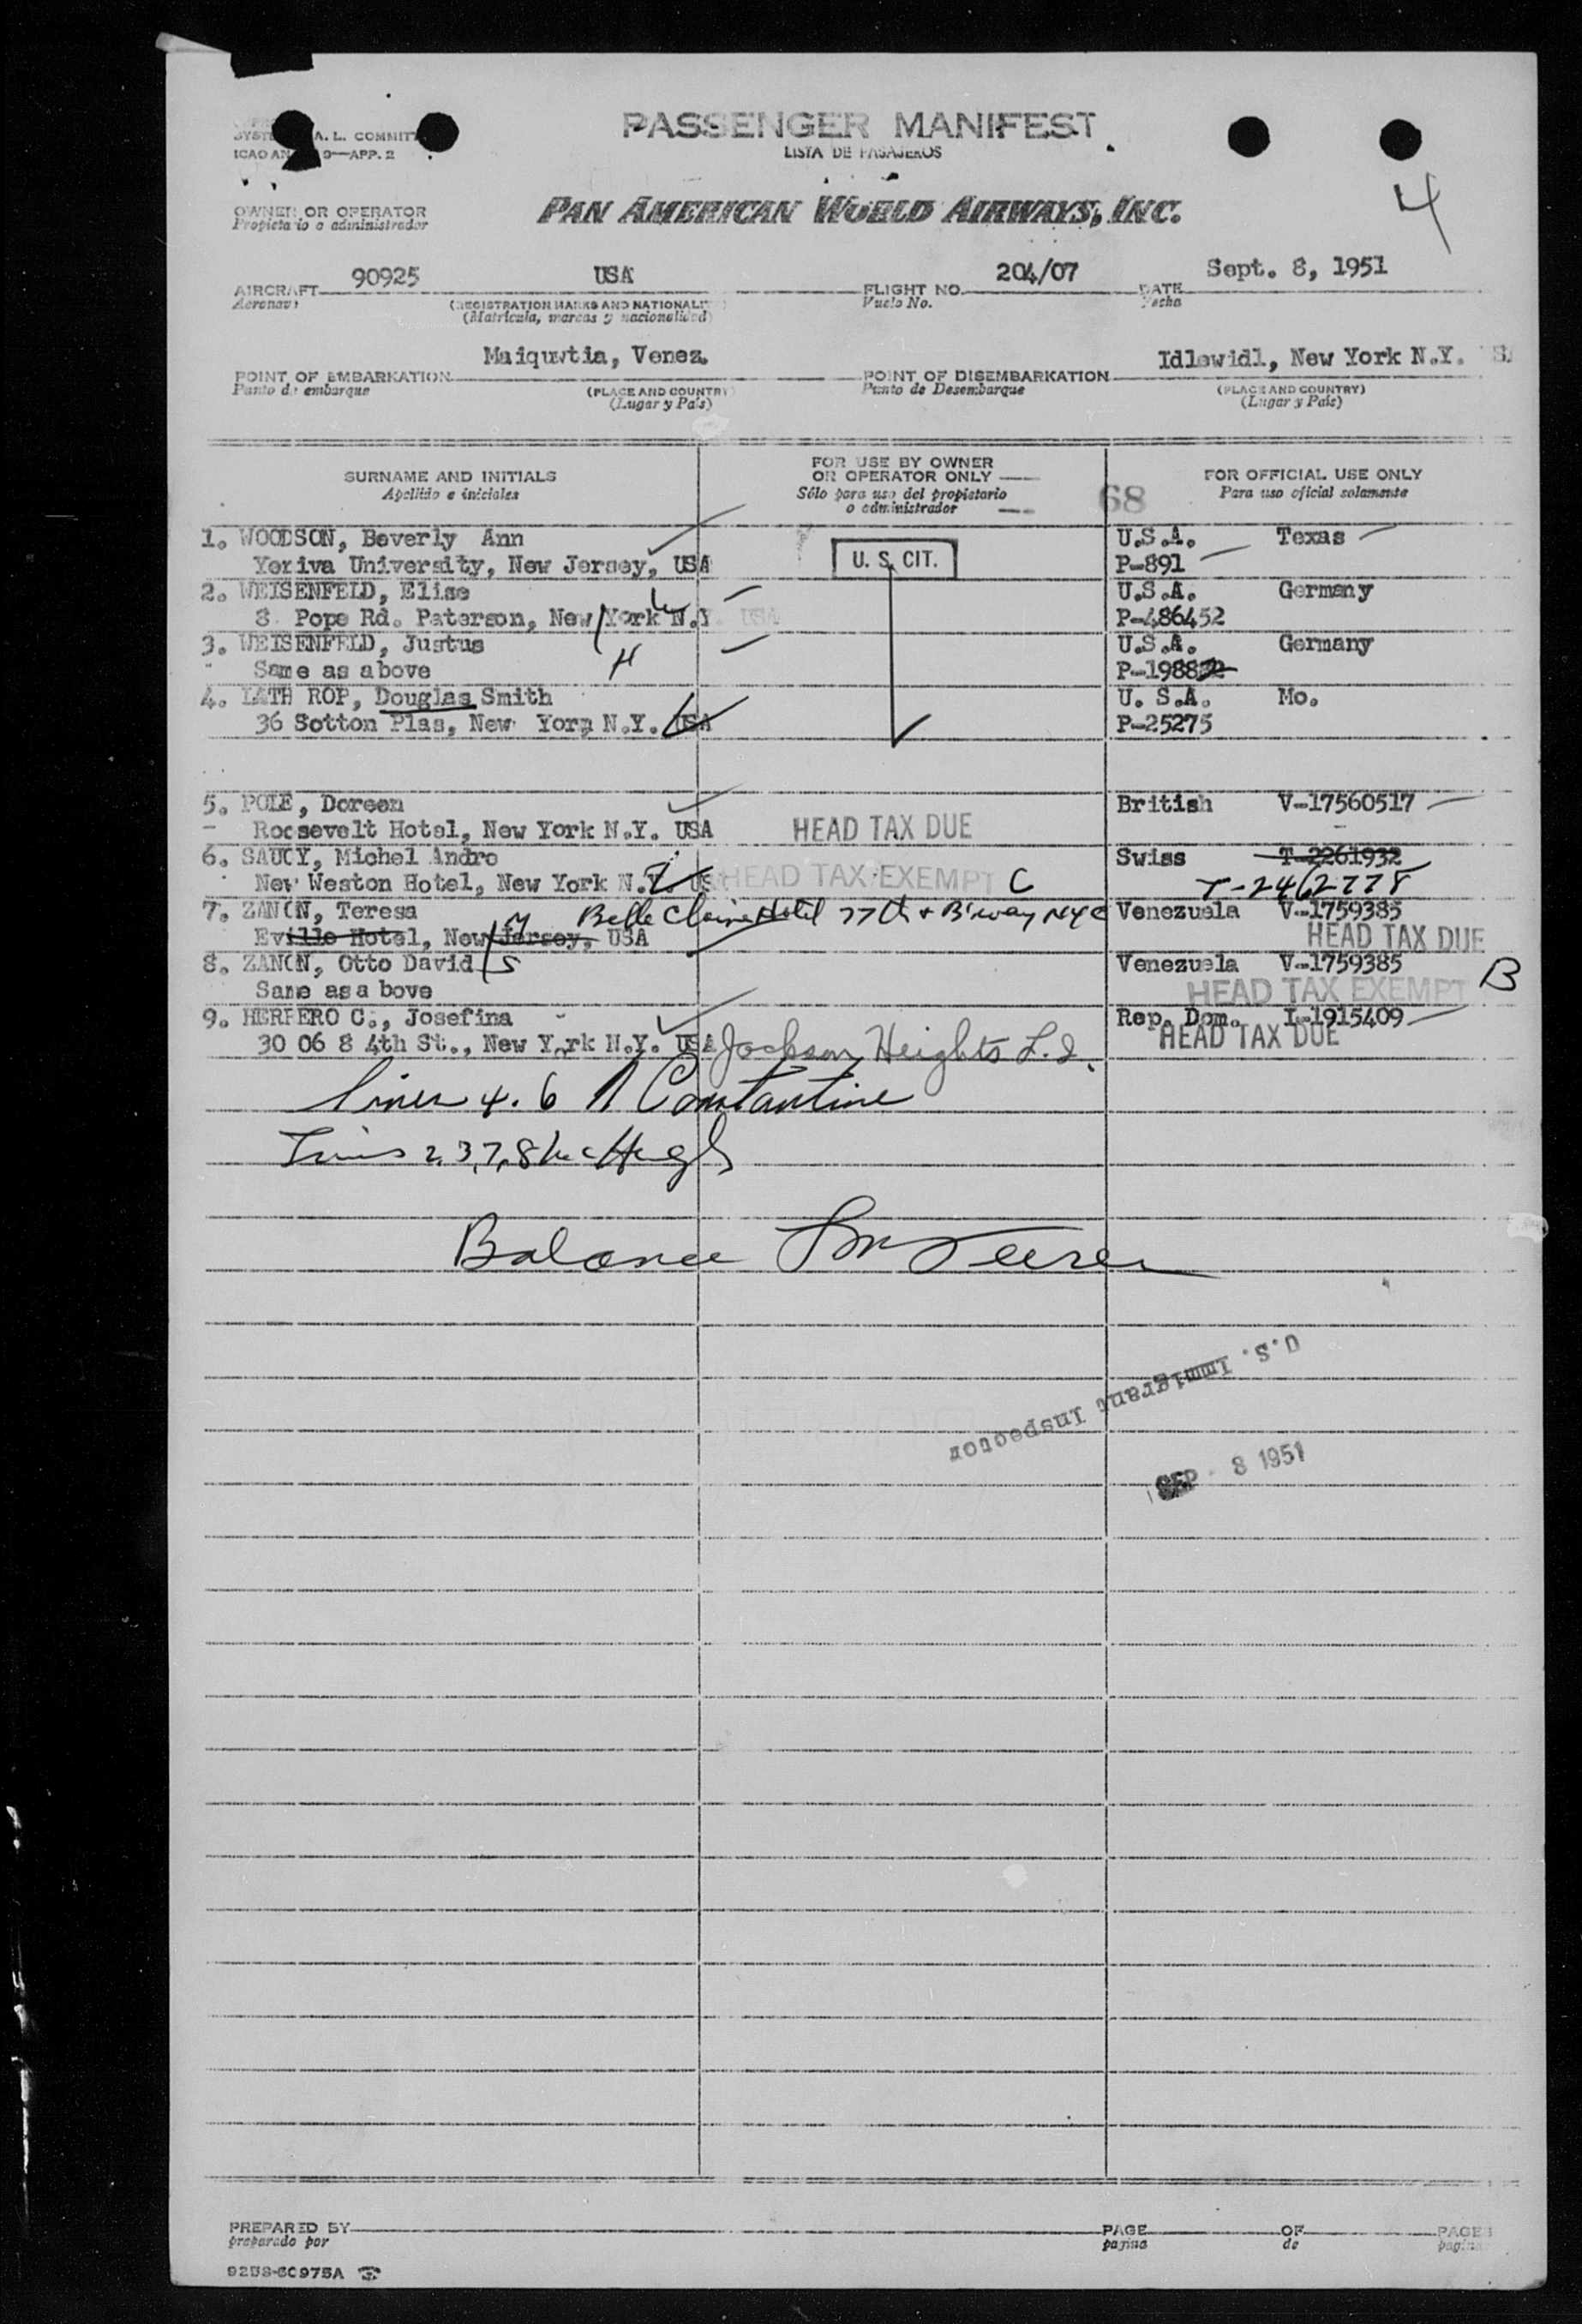 A. L. COMMITT
ICAO AN 9—APP. 2
PASSENGER MANIFEST
LISTA DE PASAJEROS
4
OWNER OR OPERATOR
Propietario o administrador
PAN AMERICAN WORLD AIRWAYS, INC.
AIRCRAFT 90925 USA FLIGHT NO. 204/07 DATE Sept. 8, 1951
Aeronave (REGISTRATION MARKS AND NATIONALITY) Vuelo No. Fecha
(Matricula, marcas y nacionalidad)
POINT OF EMBARKATION Maiquwtia, Venez. POINT OF DISEMBARKATION Idlewidl, New York N.Y.
Punto de embarque (PLACE AND COUNTRY) Punto de Desembarque (PLACE AND COUNTRY)
(Lugar y País) (Lugar y País)
SURNAME AND INITIALS FOR USE BY OWNER OR OPERATOR ONLY FOR OFFICIAL USE ONLY
Apellido e iniciales Sólo para uso del propietario o administrador 68 Para uso oficial solamente
1. WOODSON, Beverly Ann U.S.A. Texas
Yeriva University, New Jersey, USA U. S. CIT. P-891
2. WEISENFELD, Elise U.S.A. Germany
8 Pope Rd. Paterson, New York N.Y. USA P-486452
3. WEISENFELD, Justus U.S.A. Germany
Same as above H P-19882
4. LATH ROP, Douglas Smith U. S.A. Mo.
36 Sotton Plas, New Yorn N.Y. USA P-25275
5. POLE, Doreen British V-17560517
Roosevelt Hotel, New York N.Y. USA HEAD TAX DUE
6. SAUCY, Michel Andre Swiss T-2261932
New Weston Hotel, New York N.Y. US HEAD TAX EXEMPT C T-2462778
7. ZANON, Teresa M Belle Claire Hotel 77th + B'way NYC Venezuela V-1759385
Eville Hotel, New Jersey, USA HEAD TAX DUE
8. ZANON, Otto David S Venezuela V-1759385
Same as a bove HEAD TAX EXEMPT B
9. HERRERO C., Josefina Rep. Dom. I-1915409
30 06 8 4th St., New York N.Y. USA Jackson Heights L.I. HEAD TAX DUE
Lines 4. 6 Constantine
Lines 2,3,7,8 McHugh
Balance
U.S. Immigrant Inspector
SEP 8 1951
PREPARED BY PAGE OF PAGES
preparado por pagina de pagina
9258-60975A